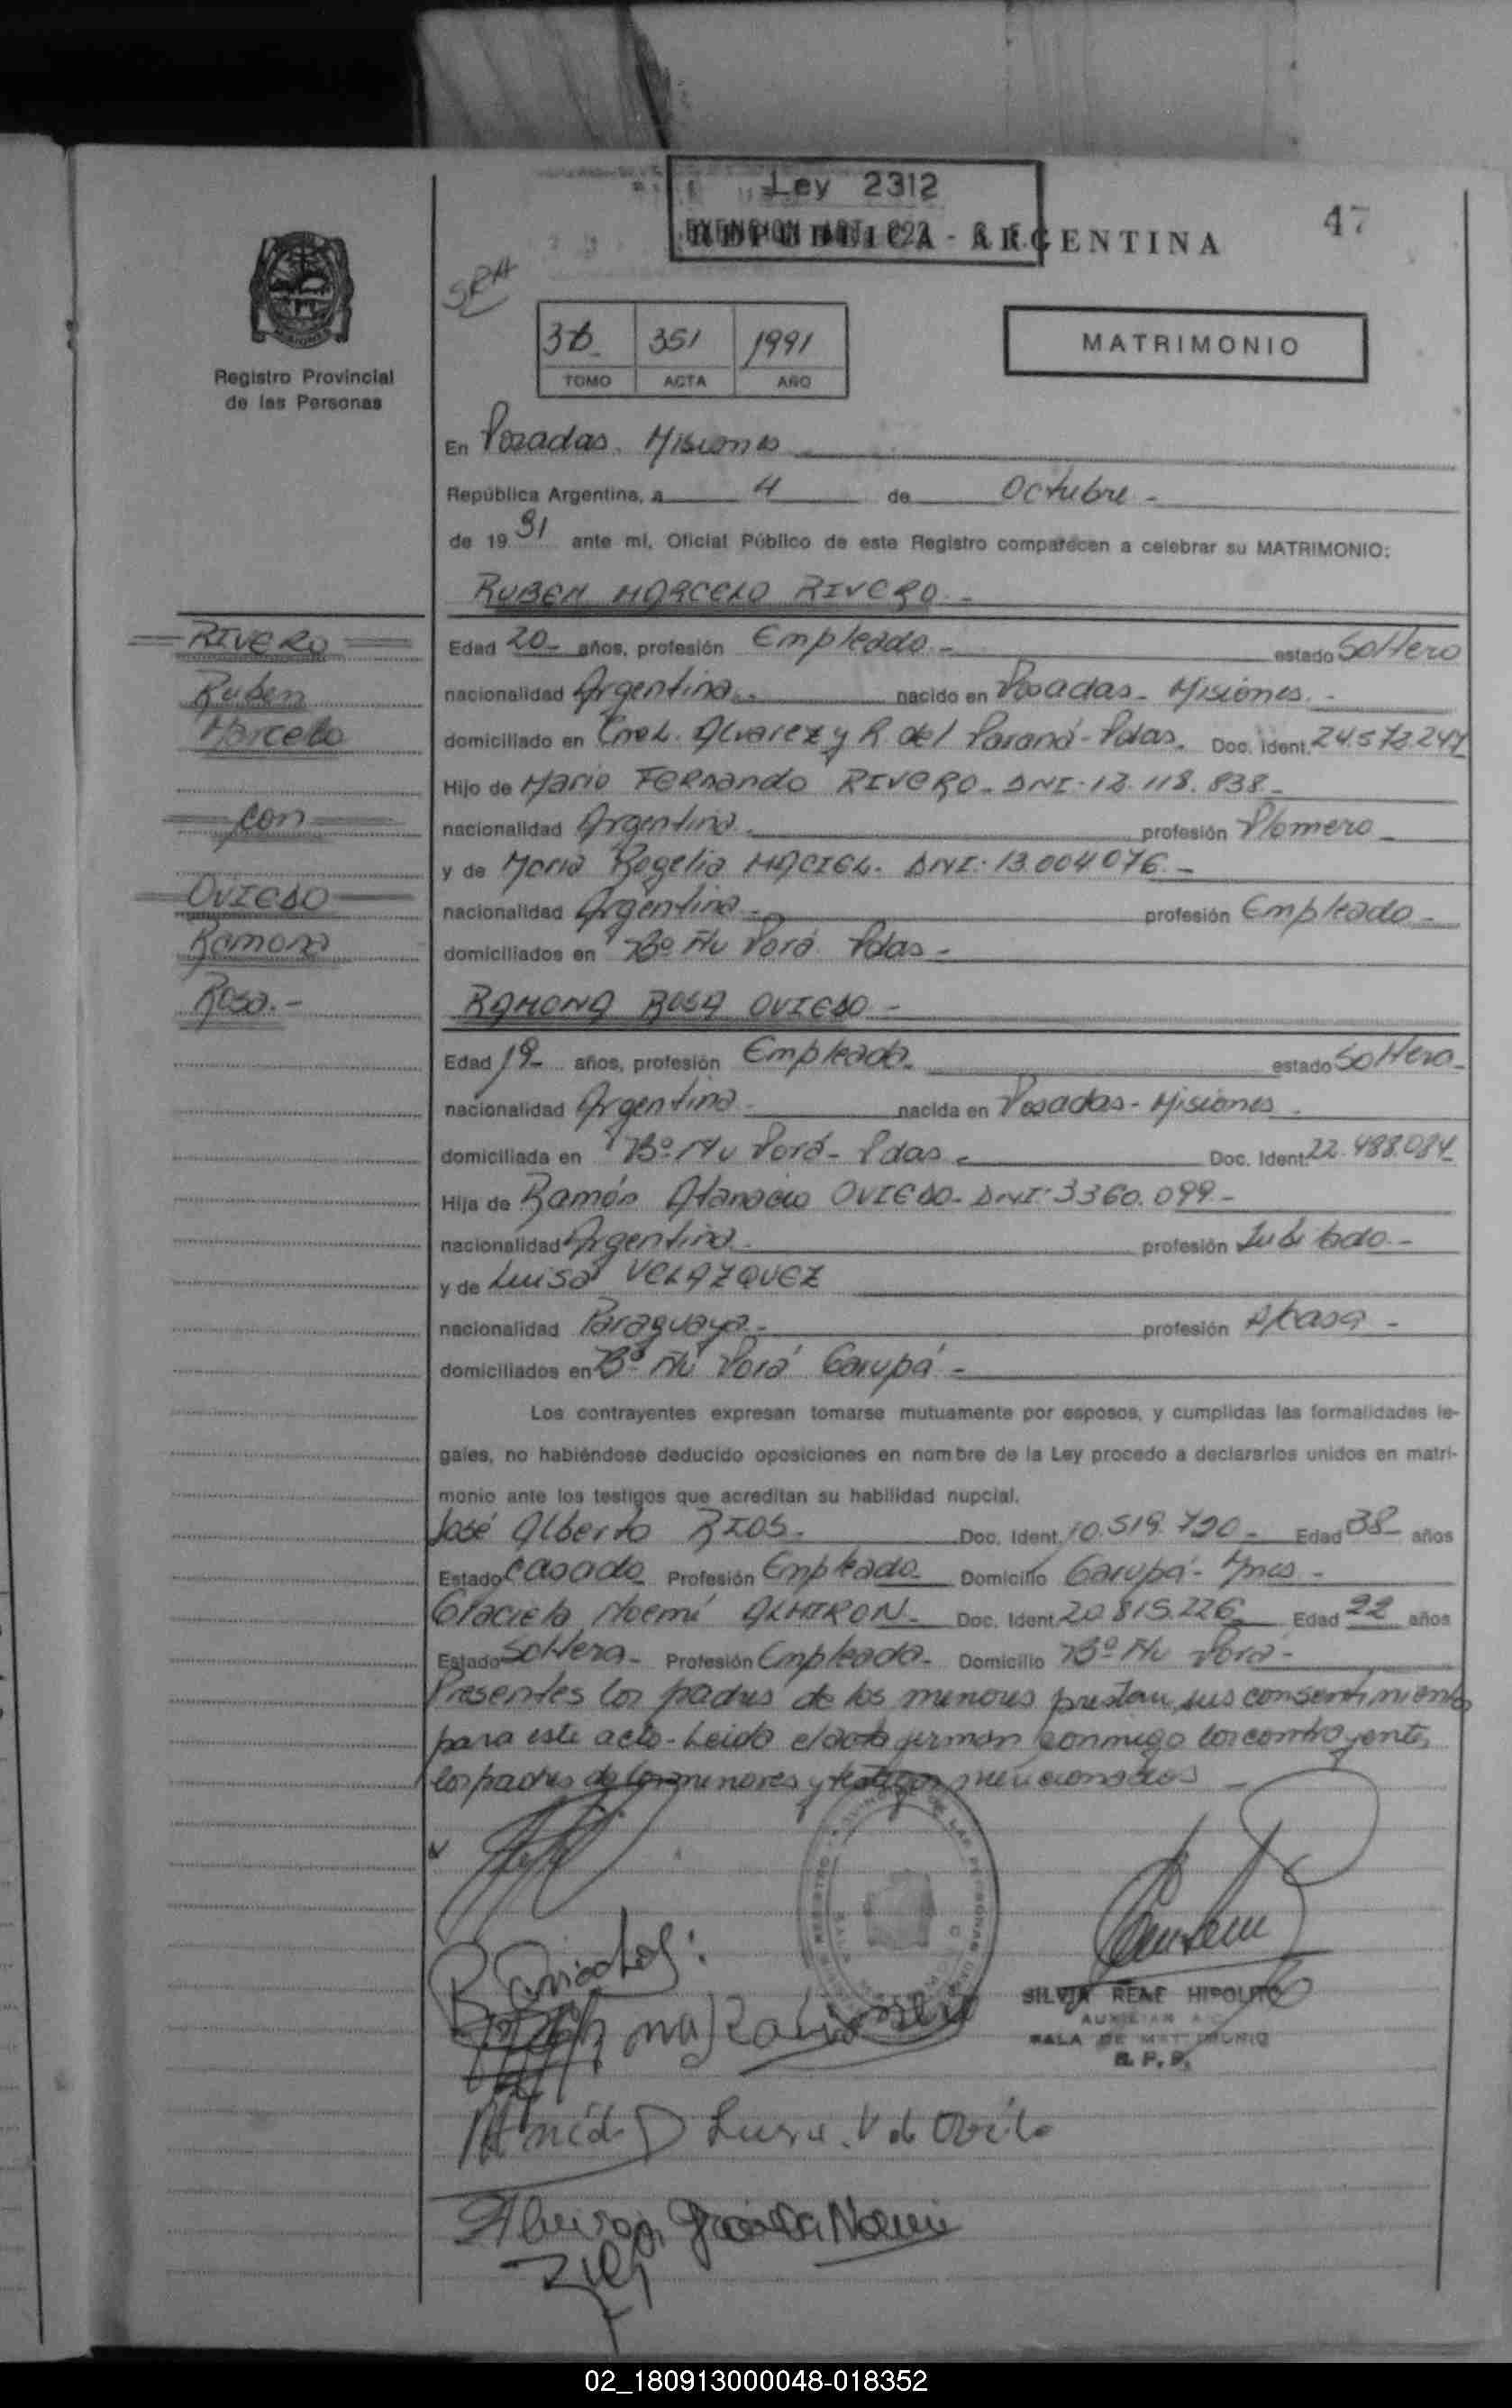 Ley 2312
REPUBLICA - ARGENTINA
47
SRA
Registro Provincial
de las Personas
351 1991
TOMO ACTA AÑO
MATRIMONIO
En Posadas. Misiones
República Argentina, a 4 de Octubre -
de 19 91 ante mí, Oficial Público de este Registro comparecen a celebrar su MATRIMONIO:
RUBEN MARCELO RIVERO -
RIVERO
Ruben
Marcelo
con
OVIEDO
Ramona
Rosa.-
Edad 20- años, profesión Empleado - estado Soltero
nacionalidad Argentina.- nacido en Posadas - Misiones. -
domiciliado en Cnel. Alvarez y R. del Paraná - Pdas. Doc. Ident. 24.572.247
Hijo de Mario Fernando RIVERO - DNI - 12.118.838 -
nacionalidad Argentina - profesión Plomero -
y de Maria Rogelia MACIEL. DNI: 13.004.076 -
nacionalidad Argentina - profesión Empleada -
domiciliados en Bº Ñu Porá Pdas -
RAMONA ROSA OVIEDO -
Edad 19- años, profesión Empleada. estado Soltera -
nacionalidad Argentina - nacida en Posadas - Misiones.
domiciliada en Bº Ñu Porá - Pdas - Doc. Ident. 22.488.084
Hija de Ramón Atanacio OVIEDO - DNI: 3360.099 -
nacionalidad Argentina - profesión Jubilado -
y de Luisa VELAZQUEZ
nacionalidad Paraguaya - profesión A/casa -
domiciliados en Bº Ñu Porá Garupá -
Los contrayentes expresan tomarse mutuamente por esposos, y cumplidas las formalidades le-
gales, no habiéndose deducido oposiciones en nombre de la Ley procedo a declararlos unidos en matri-
monio ante los testigos que acreditan su habilidad nupcial.
José Alberto RIOS - Doc. Ident. 10.519.720 - Edad 38 años
Estado Casado Profesión Empleado - Domicilio Garupá - Mnes -
Graciela Noemí ALMIRON - Doc. Ident. 20.815.226 Edad 22 años
Estado Soltera - Profesión Empleada - Domicilio Bº Ñu Porá -
Presentes los padres de los menores prestan sus consentimiento
para este acto - Leida el acta firman conmigo los contrayentes,
los padres de los menores y testigos mencionados -
SILVIA RENE HIPOLITO
AUXILIAR
SALA DE MATRIMONIO
R. P. P.
Luisa V de Oviedo
Almiron Graciela Noemi
02_180913000048-018352